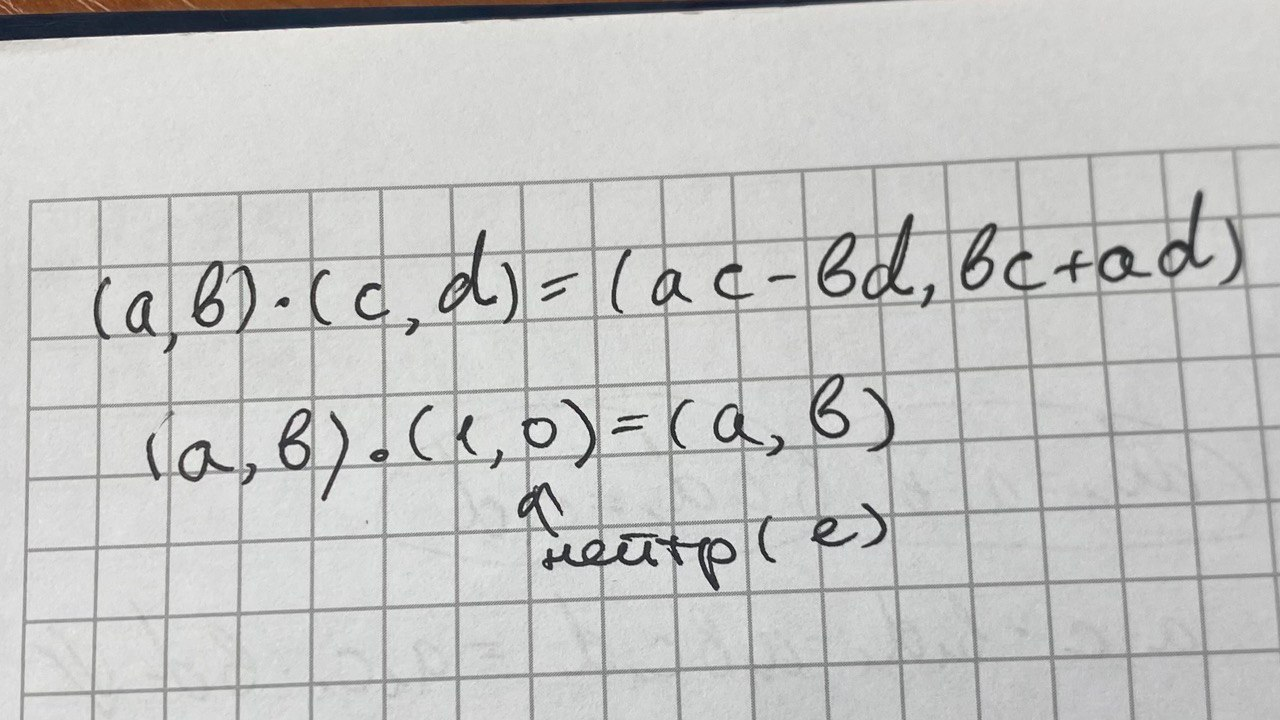 (a,b)·(c,d)=(ac-bd,bc+ad)
(a,b)·(1,0)=(a,b)
нейтр(e)